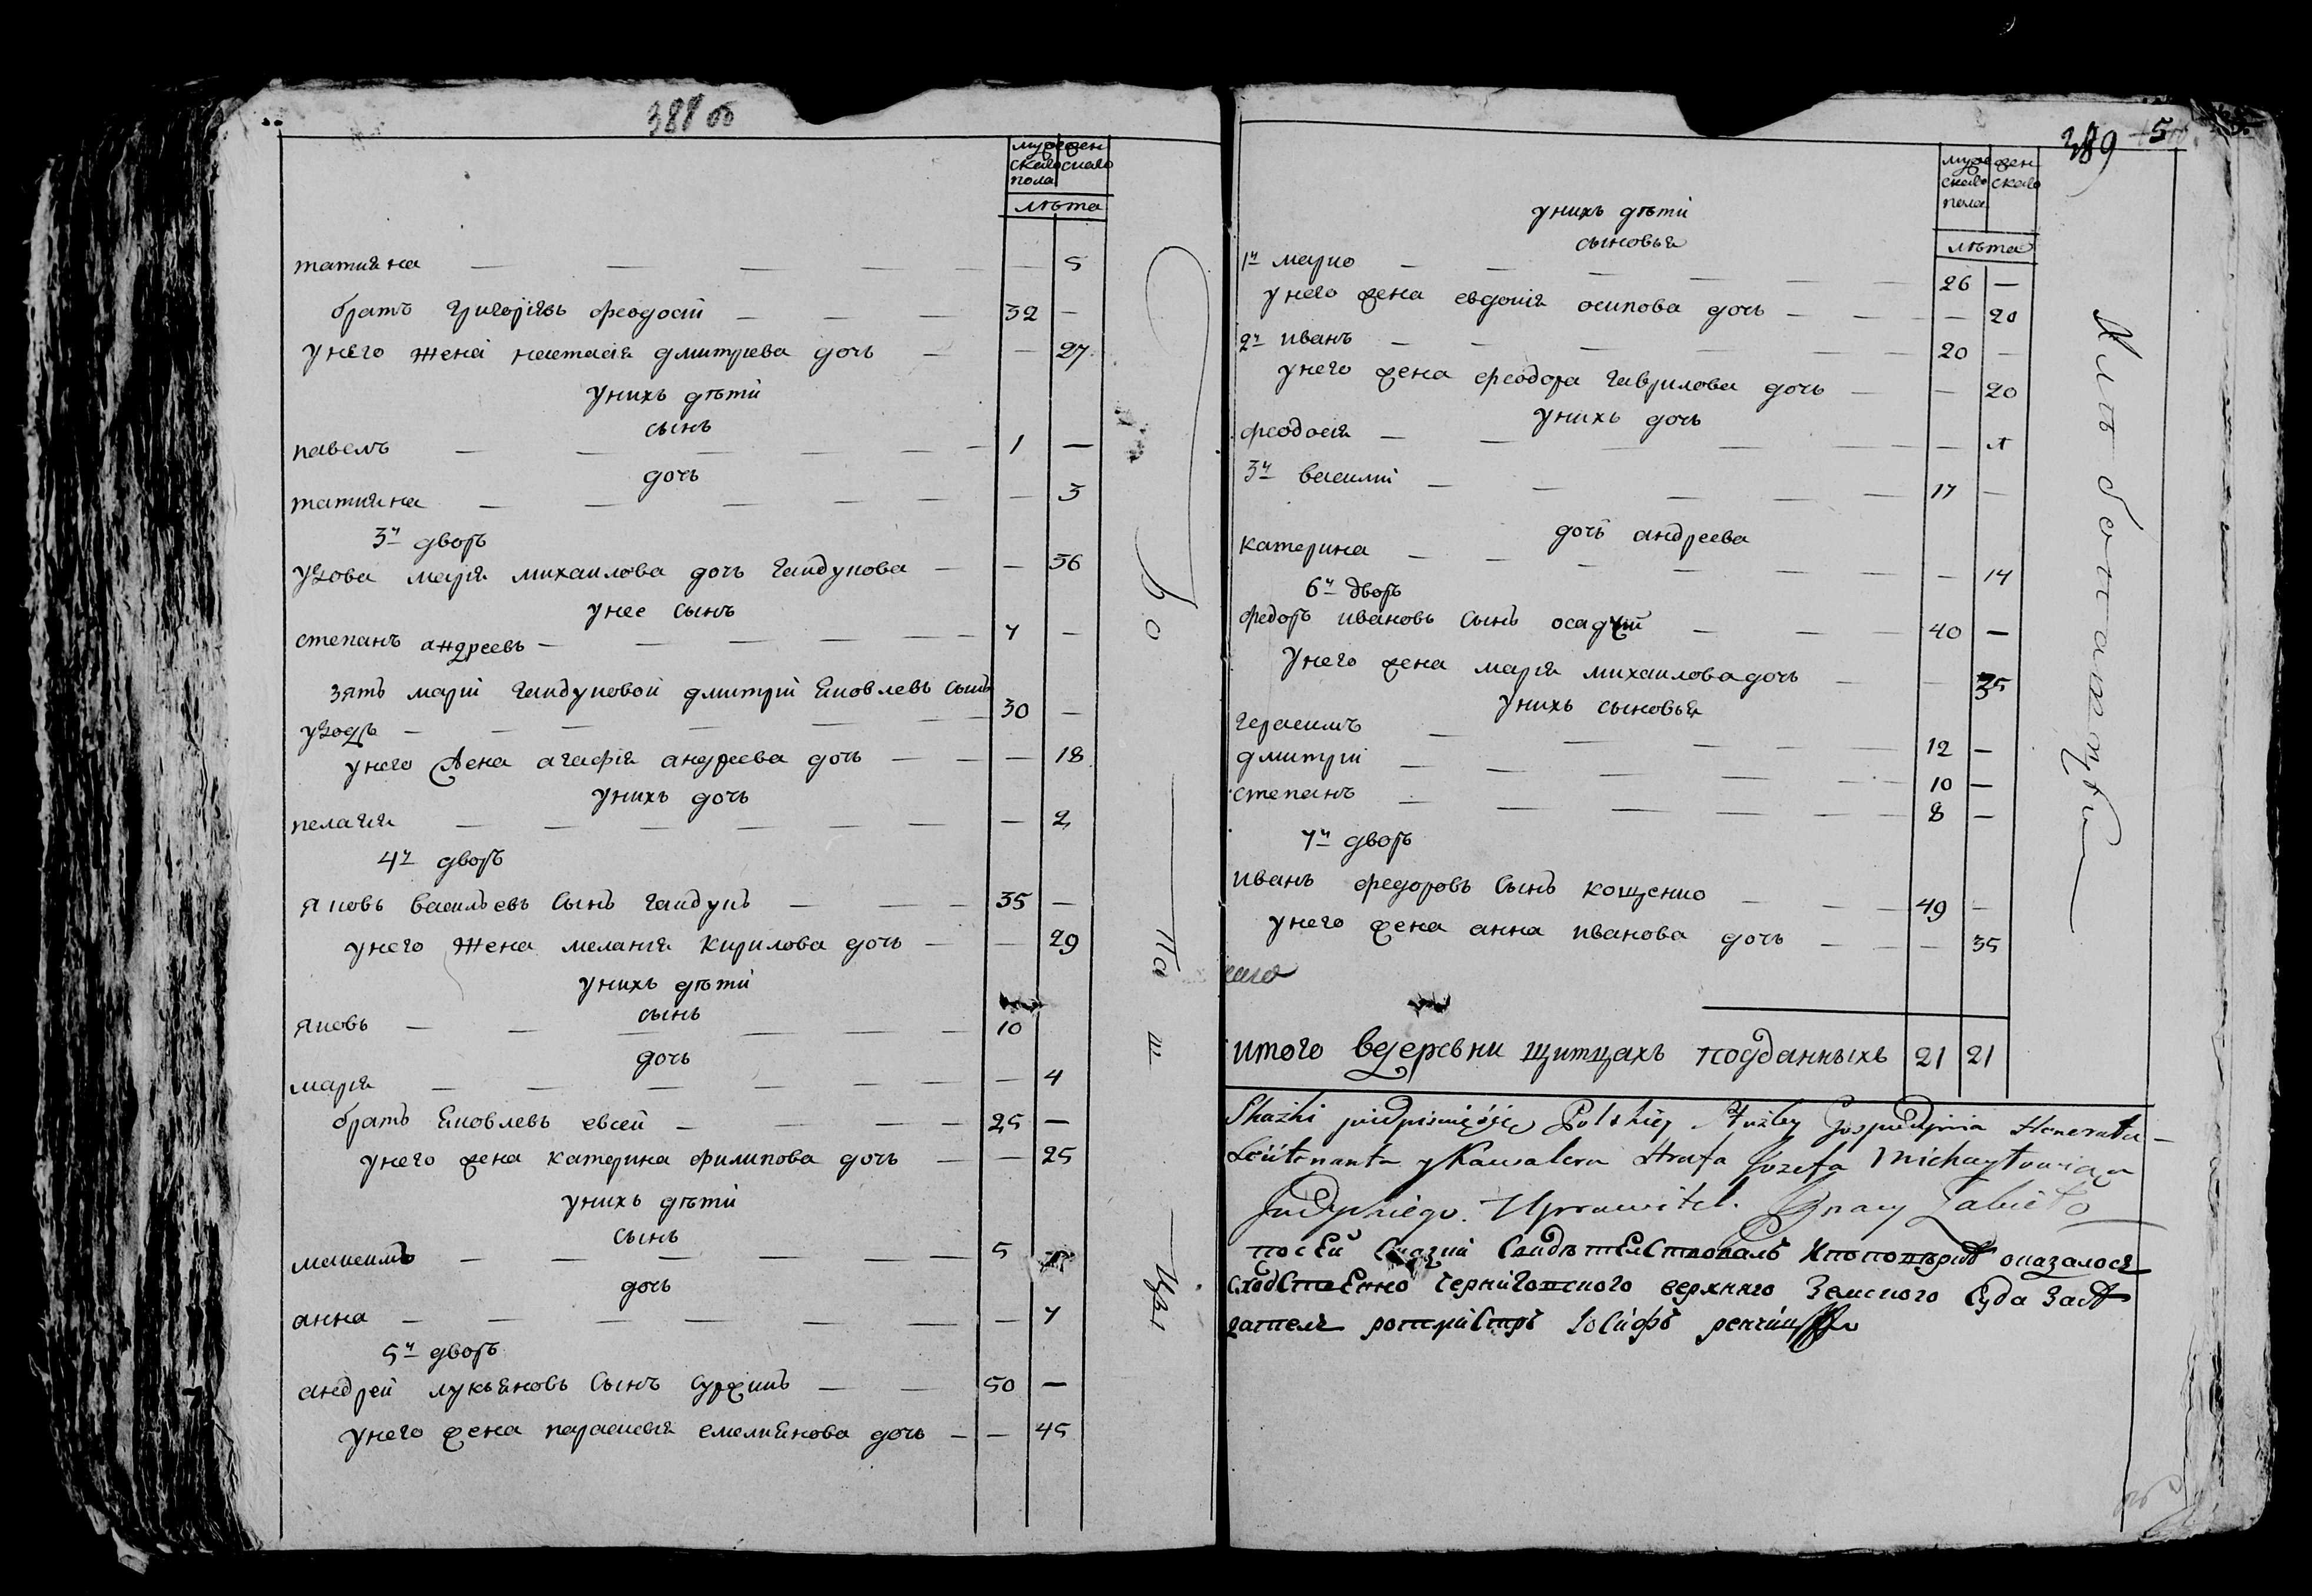 388 об
муже ск\u0430го пола
жен скаго
лѣта
татияна — 5
братъ григоріевъ феодосій — 32 —
унего жена настасія дмитриева дочь — 27
унихъ дѣти
сынъ
павелъ — 1 —
дочь
татияна — 3
3й дворъ
марія михаилова дочь гайдукова — 36
унее сынъ
степанъ андреевъ — 7 —
зять маріи гайдуковой дмитрій яковлевъ сынъ
30 —
унего жена агафія андреева дочь — 18
унихъ дочь
пелагия — 2
4й дворъ
яковъ васильевъ сынъ гайдукъ — 35 —
унего жена меланія кирилова дочь — 29
унихъ дѣти
сынъ
яковъ — 10
дочь
марія — 4
братъ яковлевъ евсей — 25 —
унего жена катерина филипова дочь — 25
унихъ дѣти
сынъ
максимъ — 5
дочь
анна — 7
5й дворъ
андрей лукьяновъ сынъ — 50 —
унего жена параскевія емелиянова дочь — 45
389
5
муже скаго пола
жен скаго
лѣта
унихъ дѣти
сыновья
1й марко — 26 —
унего жена евдокія осипова дочь — 20
2й иванъ — 20 —
унего жена феодора гаврилова дочь — 20
унихъ дочь
феодосія —
3й василий — 17 —
дочь андреева
катерина — 14
6й дворъ
федоръ ивановъ сынъ осадчій — 40 —
унего жена марія михаилова дочь — 35
унихъ сыновья
герасимъ — 12 —
дмитрій — 10 —
степанъ — 8 —
7й дворъ
иванъ федоровъ сынъ кощенко — 49 —
унего жена анна иванова дочь — 35
итого вдеревни щитцахъ подданныхъ 21 21
Skazki Polskiey Służby Gospodina Henerała-
Leitenanta y Kawalera Hrafa Jozefa Michayłowicza
Uprawitel. Ignacy
посей сказки свидѣтелствовалъ ипоповѣрке оказалося
сходственно черниговского верхняго земского суда засѣ
дателя ротмистръ Іосифъ